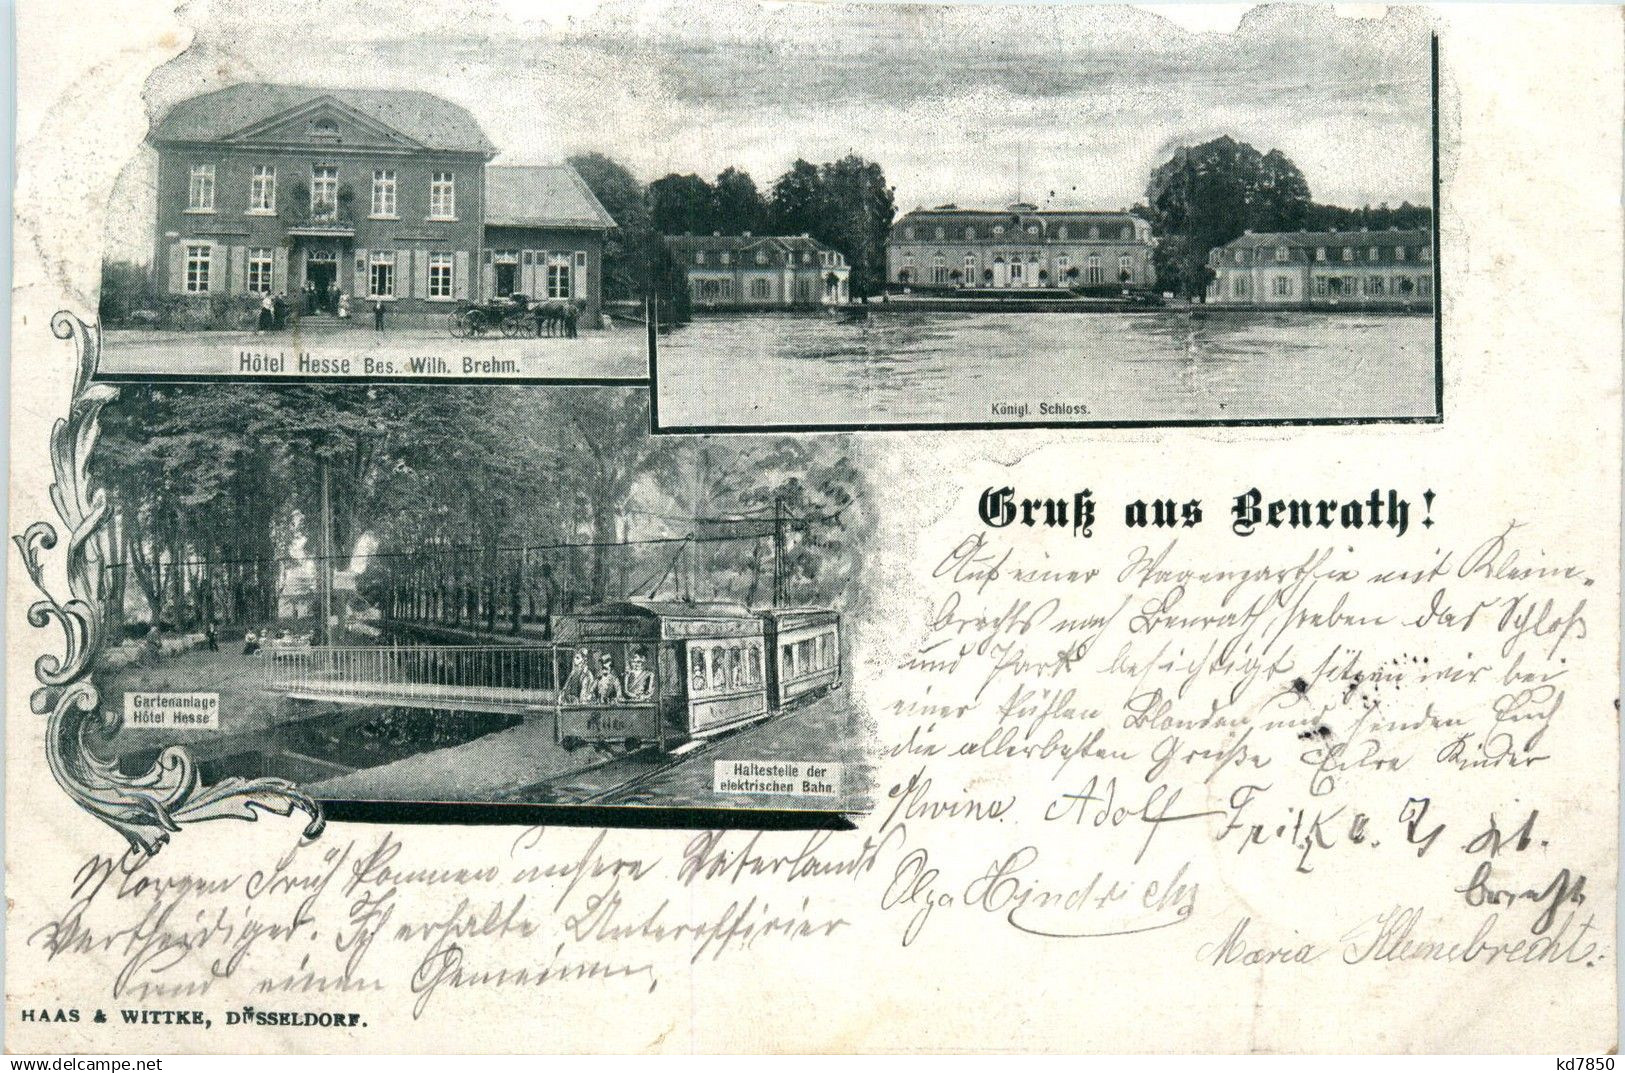 Hôtel Hesse Bes. Wilh. Brehm.
Königl. Schloss.
Gartenanlage
Hôtel Hesse.
Haltestelle der
elektrischen Bahn.
Gruß aus Benrath!
Auf einer Wagenparthie mit Kleine-
brechts nach Benrath, soeben das Schloß
und Park besichtigt sitzen wir bei
einer kühlen Blonden und senden Euch
die allerbesten Grüße Eure Kinder
Alwine. Adolf Fritz
brecht
Olga Hindrichs
Maria Kleinebrecht.
Morgen Früh kommen unsere Vaterlands
Vertheidiger. Ich erhalte Unteroffizier
und einen Gemeinen.
HAAS & WITTKE, DÜSSELDORF.
delcampe.net
kd7850